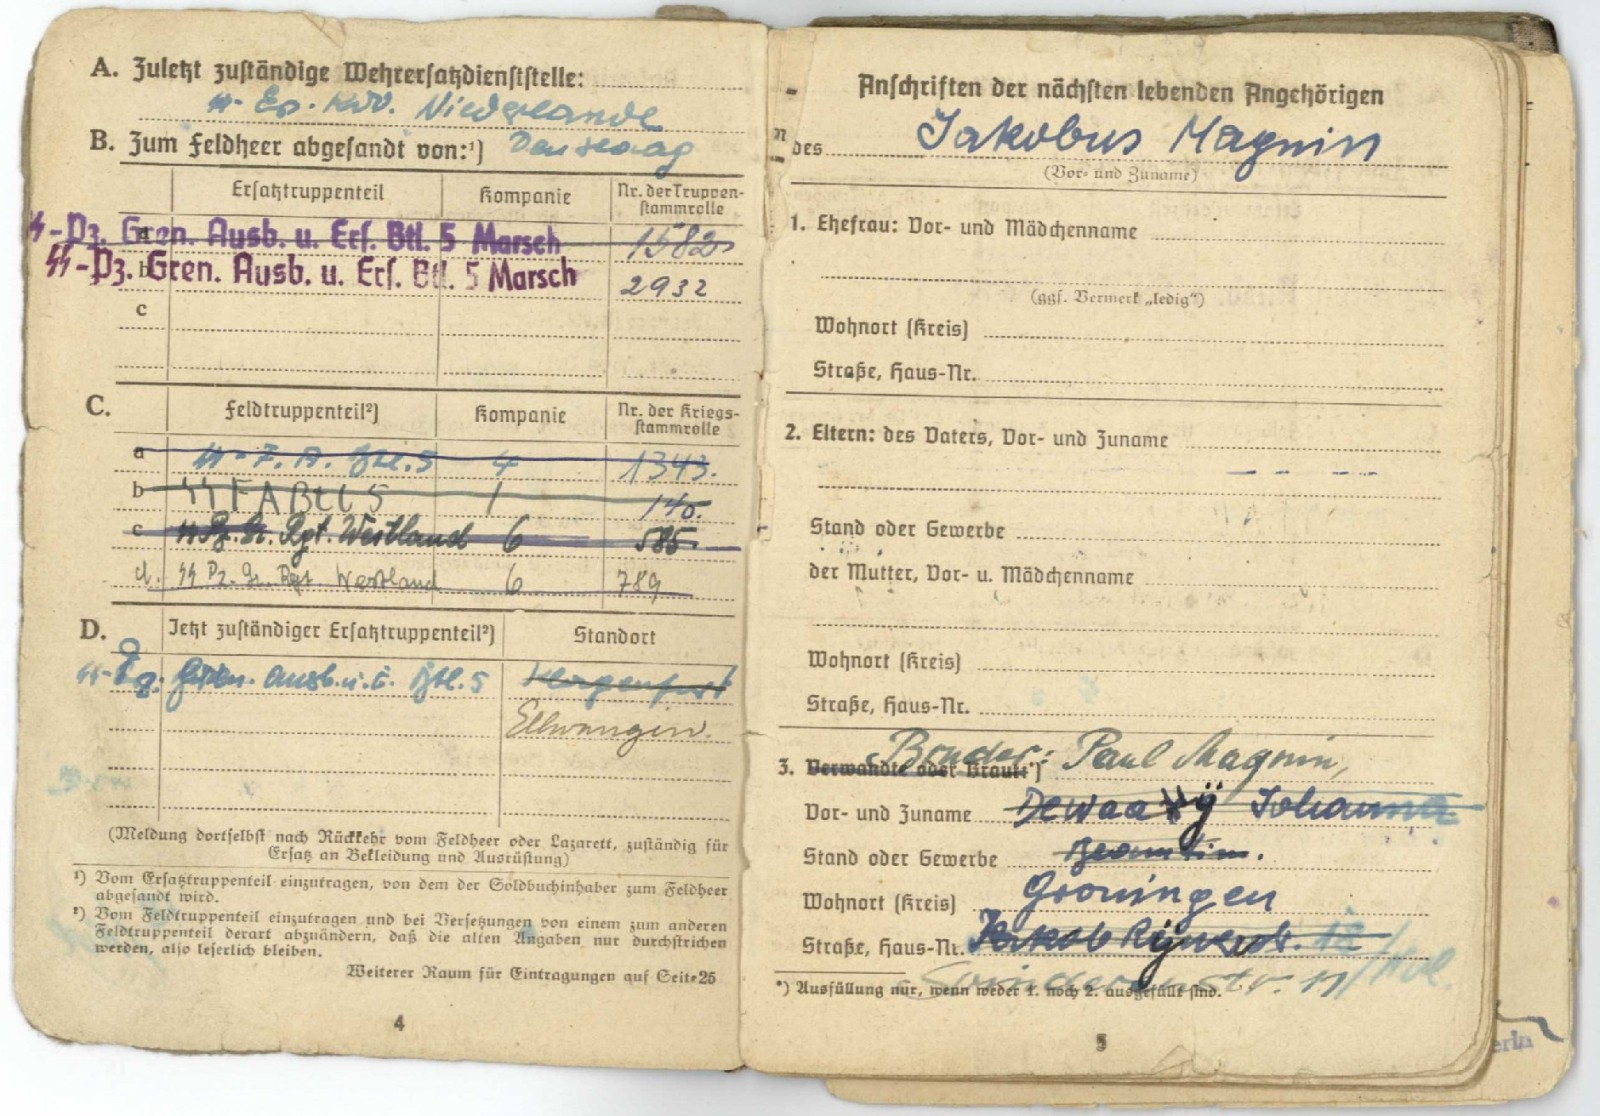 A. Zuletzt zuständige Wehrersatzdienststelle:
SS- Niederlande
B. Zum Feldheer abgesandt von:¹) Den Haag
Ersatztruppenteil Kompanie Nr. der Truppen-
stammrolle
a SS-Pz. Gren. Ausb. u. Ers. Btl. 5 Marsch 1582
b SS-Pz. Gren. Ausb. u. Ers. Btl. 5 Marsch 2932
c
C. Feldtruppenteil²) Kompanie Nr. der Kriegs-
stammrolle
a SS-F. A. Btl. 5 4 1343.
b SS FA Btl 5 1 140.
c SS Pz. Gr. Rgt. Westland 6 585
d. SS Pz. Gr. Rgt. Westland 6 789
D. Jetzt zuständiger Ersatztruppenteil²) Standort
SS-Pz. Gren. Ausb. u. E. Btl. 5
Ellwangen.
(Meldung dortselbst nach Rückkehr vom Feldheer oder Lazarett, zuständig für
Ersatz an Bekleidung und Ausrüstung)
¹) Vom Ersatztruppenteil einzutragen, von dem der Soldbuchinhaber zum Feldheer
abgesandt wird.
²) Vom Feldtruppenteil einzutragen und bei Versetzungen von einem zum anderen
Feldtruppenteil derart abzuändern, daß die alten Angaben nur durchstrichen
werden, also leserlich bleiben.
Weiterer Raum für Eintragungen auf Seite 25
4
Anschriften der nächsten lebenden Angehörigen
des Jakobus Magnin
(Vor- und Zuname)
1. Ehefrau: Vor- und Mädchenname
(ggf. Vermerk „ledig“)
Wohnort (Kreis)
Straße, Haus-Nr.
2. Eltern: des Vaters, Vor- und Zuname
Stand oder Gewerbe
der Mutter, Vor- u. Mädchenname
Wohnort (Kreis)
Straße, Haus-Nr.
Bruder: Paul Magnin,
3. Verwandte oder Braut*)
Vor- und Zuname Johanna
Stand oder Gewerbe Beamtin.
Wohnort (Kreis) Groningen
Straße, Haus-Nr. Jakob
*) Ausfüllung nur, wenn weder 1. noch 2. ausgefüllt sind.
5